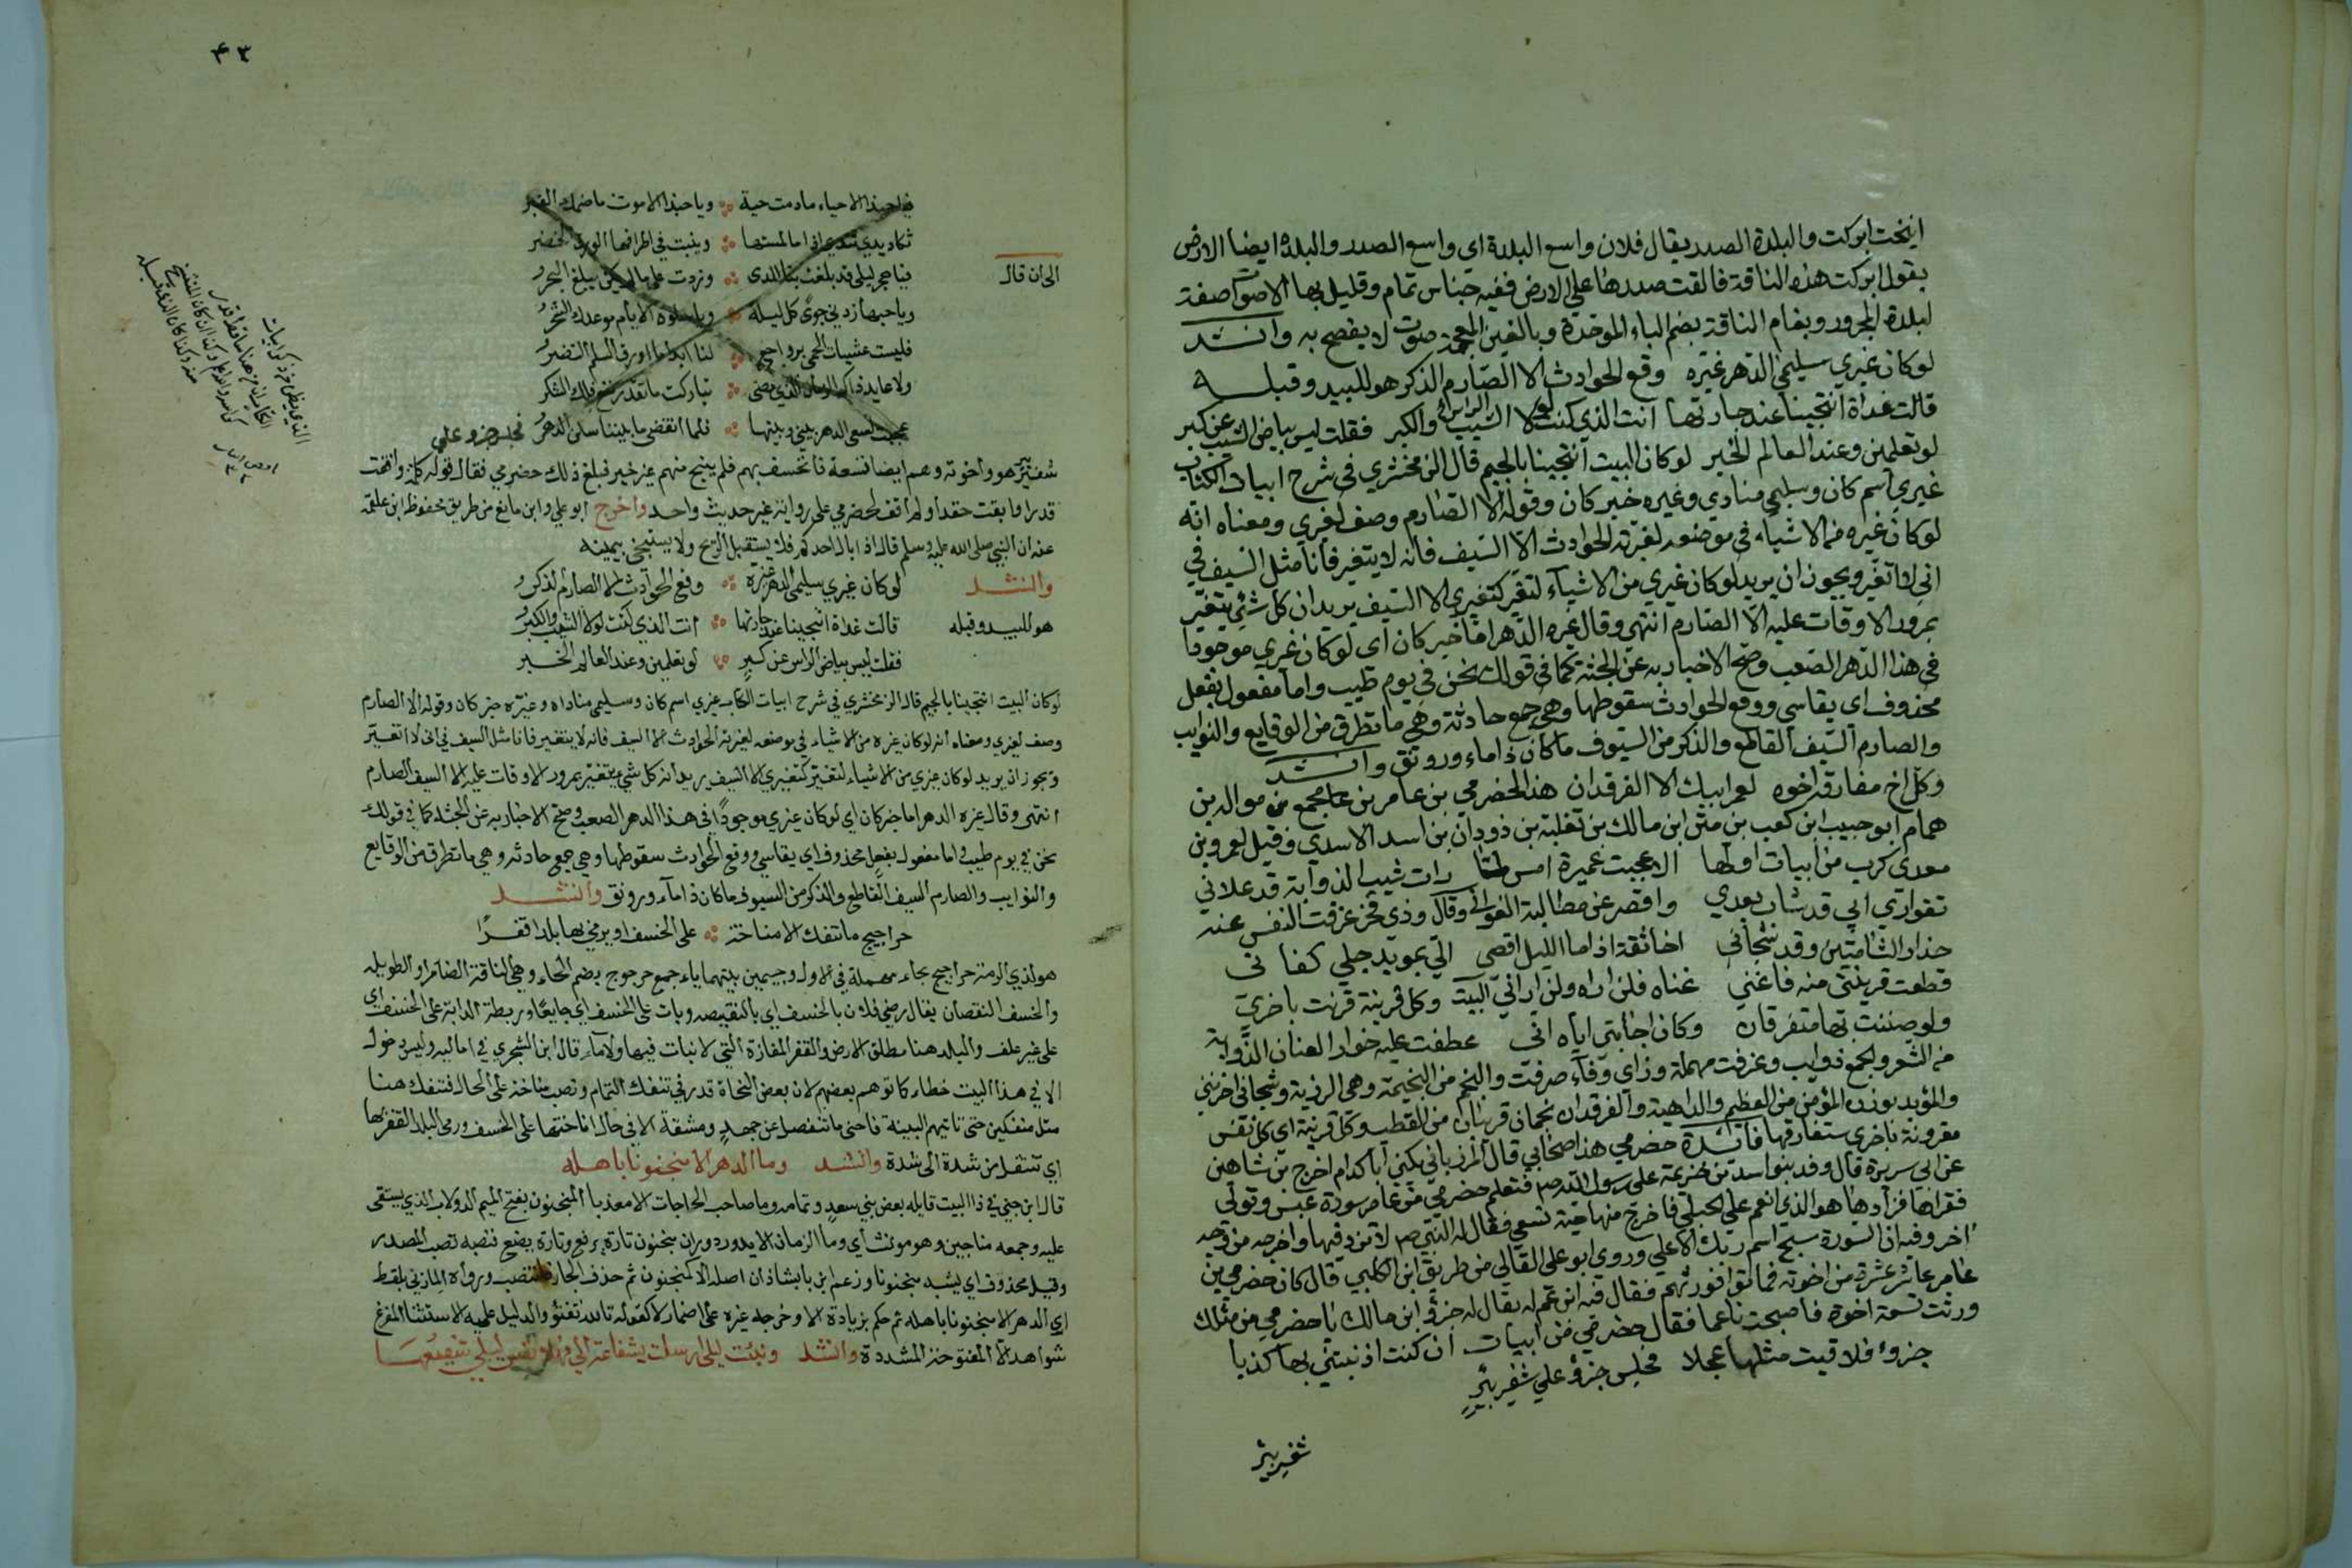 انيخت ابركت والبلدة الصدر يقال فلان واسع البلدة اى واسع الصدر والبلدة ايضا الارض
يقول ابركت هذه الناقة فالقت صدرها على الارض ففيه جناس تمام وقليل بها الاصوات صفة
لبلدة المجرور وبغام الناقة بضم الباء الموحدة وبالغين المعجمة صوت لا يفصح به وانشد
لوكان غيري سليمى الدهر غيره وقع الحوادث الا الصارم الذكر هو للبيد وقبله
قالت غداة انتجينا عند جارتها انت الذي كنت لولا الشيب والكبر فقلت ليس بياض الشيب عن كبر
لو تعلمين وعند العالم الخبر لوكان البيت انتجينا بالجيم قال الزمخشري في شرح ابيات الكتاب
غيري اسم كان وسليمى منادي وغيره خبر كان وقوله الا الصارم وصف لغيري ومعناه انه
لوكان غيره من الاشياء في موضعه لغيرته الحوادث الا السيف فانه لا يتغير فانا مثل السيف في
اني لا اتغير ويجوز ان يريد لوكان غيري من الاشياء لتغير كتغيري الا السيف يريد ان كل شئ يتغير
بمرور الاوقات عليه الا الصارم انتهى وقال غيره الدهر اما خبر كان اى لوكان غيري موجودا
في هذا الدهر الصعب وصح الاخبار به عن الجثة كما في قولك نحن في يوم طيب واما مفعول بفعل
محذوف اى يقاسي ووقع الحوادث سقوطها وهي جمع حادثة وهي ما تطرق من الوقايع والنوايب
والصارم السيف القاطع والذكر من السيوف ماكان ذا ماء ورونق وانشد
وكل اخ مفارقه اخوه لعمر ابيك الا الفرقدان هذا لحضرمي بن عامر بن مجمع بن موالة بن
همام ابو حبيب ابن كعب بن مثن ابن مالك بن ثعلبة بن ذودان بن اسد الاسدي وقيل لعمرو بن
معدى كرب من ابيات اولها الا عجبت عميرة امس لما رات شيب الذوابة قد علاني
تقول ارى ابي قد شاب بعدي واقصر عن مطالبة الغواني وقال وذي فخر عزفت النفس عنه
حذار الشامتين وقد شجاني اخا ثقة اذا ما الليل افضى الي بمويد جلي كفاني
قطعت قرينتي منه فاغني غناه فلن اراه ولن اراني البيت وكل قرينة قرنت باخرى
ولو ضننت بها ستفرقان وكان اجابتي اياه اني عطفت عليه خوار العنان الذوابة
من الشعر والجمع ذوايب وعزفت مهملة وزاي وفاء صرفت
والمؤيد بوزن المؤمن من العظيم والداهية والفرقدان نجمان قريبان من القطب وكل قرينة اى كل نفس
مقرونة باخرى ستفارقها فائدة حضرمي هذا صحابي قال المرزباني يكنى ابا كدام اخرج بن شاهين
عن ابي هريرة قال وفد بنو اسد بن خزيمة على رسول الله صم فتعلم حضرمي بن عامر سورة عبس وتولى
فقراها فزاد فيها هو الذي انعم على الحبلى فاخرج منها حية تسعى فقال له النبي صم لا تزد فيها واخرجه من وجه
اخر وفيه ان السورة سبح اسم ربك الاعلى وروى ابو على القالي من طريق ابن الكلبي قال كان حضرمي بن
عامر عاشر عشرة من اخوته فماتوا فورثهم فقال فيه ابن عم له يقال له جزؤ ابن مالك يا حضرمي من مثلك
ورثت تسعة اخوة فاصبحت ناعما فقال حضرمي من ابيات ان كنت اذ ننتني بها كذبا
جزؤ فلاقيت مثلها عجلا فجلس جزؤ على شفير بئر
شفير بئر
٤٣
فيا حبذا الاحياء ما دمت حية وياحبذا الاموت ما ضمك القبر
تكاد يدي تندى اذا ما لمستها وينبت في اطرافها الورق الخضر
الى ان قال فيا هجر ليلى قد بلغت بنا المدى وزدت على ما لم يكن يبلغ الهجر
ويا حبها زدني جوى كل ليلة ويا سلوة الايام موعدك الحشر
فليست عشيات الحمى برواجع لنا ابدا ما اورق السلم النضر
ولا عايد ذاك الزمان الذي مضى تباركت ما تقدر يقع فلك الشكر
عجبت لسعى الدهر بيني وبينها فلما انقضى ما بيننا سكن الدهر فجلس جزو على
شفير بئر هو واخوته وهم ايضا تسعة فانخسف بهم فلم ينج منهم غير خير فبلغ ذلك حضرمي فقال قوله كلمة وافقت
قدرا وابقت حقدا ولم اقف لحضرمي على رواية غير حديث واحد واخرج ابو علي وابن مانع من طريق محفوظ ابن علقمة
عنه ان النبي صلى الله عليه وسلم قال اذا بال احدكم فلا يستقبل الريح ولا يستنج بيمينه
وانشد لوكان غيري سليمى الدهر غيره وقع الحوادث الا الصارم الذكر
هو للبيد وقبله قالت غداة انتجينا عند جارتها انت الذي كنت لولا الشيب والكبر
فقلت ليس بياض الراس عن كبر لو تعلمين وعند العالم الخبر
لوكان البيت انتجينا بالجيم قال الزمخشري في شرح ابيات الكتاب غيري اسم كان وسليمى مناداه وغيره خبر كان وقوله الا الصارم
وصف لغيري ومعناه انه لوكان غيره من الاشياء في موضعه لغيرته الحوادث الا السيف فانه لا يتغير فانا مثل السيف في اني لا اتغير
ويجوز ان يريد لوكان غيري من الاشياء لتغير كتغيري الا السيف يريد ان كل شيء يتغير بمرور الاوقات عليه الا السيف الصارم
انتهى وقال غيره الدهر اما خبر كان اى لوكان غيري موجودا في هذا الدهر الصعب وصح الاخبار به عن الجثة كما في قولك
نحن في يوم طيب واما مفعول بفعل محذوف اى يقاسي ووقع الحوادث سقوطها وهي جمع حادثه وهي ما تطرق من الوقايع
والنوايب والصارم السيف القاطع والذكر من السيوف ماكان ذا ماء ورونق وانشد
حراجيج ما تنفك الا مناخة على الخسف او يرمى بها بلدا قفرا
هو لذي الرمة حراجيج بحاء مهملة في الاول وجيمين بينهما ياء جمع حرجوج بضم الحاء وهي الناقة الضامر او الطويله
والخسف النقصان يقال رضي فلان بالخسف اى بالنقيصه وبات على الخسف اى جايعا وربطت الدابة على الخسف اى
على غير علف والبلد هنا مطلق الارض والقفر المفازة التي لا نبات فيها ولا ماء قال ابن الشجري في اماليه وليس دخول
الا في هذا البيت خطاء كما توهم بعضهم لان بعض النحاة قدر في تنفك التمام ونصب مناخة على الحال فتنفك هنا
مثل منفكين حتى تاتيهم البينة فاحنى ما تنفصل عن جهد ومشقة الا في حال اناختها على الخسف ورمى البلد القفر بها
اى تنتقل من شدة الى شدة وانشد وما الدهر الا منجنونا باهله
قال ابن جني في ذا البيت قايله بعض بني سعد وتمامه وما صاحب الحاجات الا معذبا المنجنون بفتح الميم الدولاب الذي يستقى
عليه وجمعه مناجين وهو مونث اى وما الزمان الا يدور دوران منجنون تارة يرفع وتارة يضع فنصبه نصب المصدر
وقيل محذوف اى يشبه منجنونا وزعم ابن بابشاذ ان اصله الا كمنجنون ثم حذف الجار فانتصب ورواه المازني بلفظ
ارى الدهر الا منجنونا باهله ثم حكم بزيادة الا وخرجه غيره على اضمار لا كقوله تالله تفتؤ والدليل عليه الاستثنا المفرغ
شواهد الا المفتوحة المشددة وانشد ونبئت ليلى ارسلت بشفاعة الي فهلا نفس ليلى شفيعها